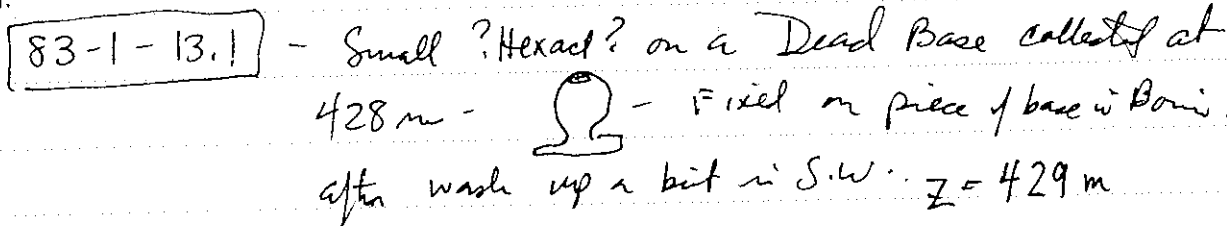 83-1-13.1 - Small ?Hexact? on a Dead Base collected at
428 m - - Fixed on piece of base in Bouin
after wash up a bit in S.W.. Z = 429 m